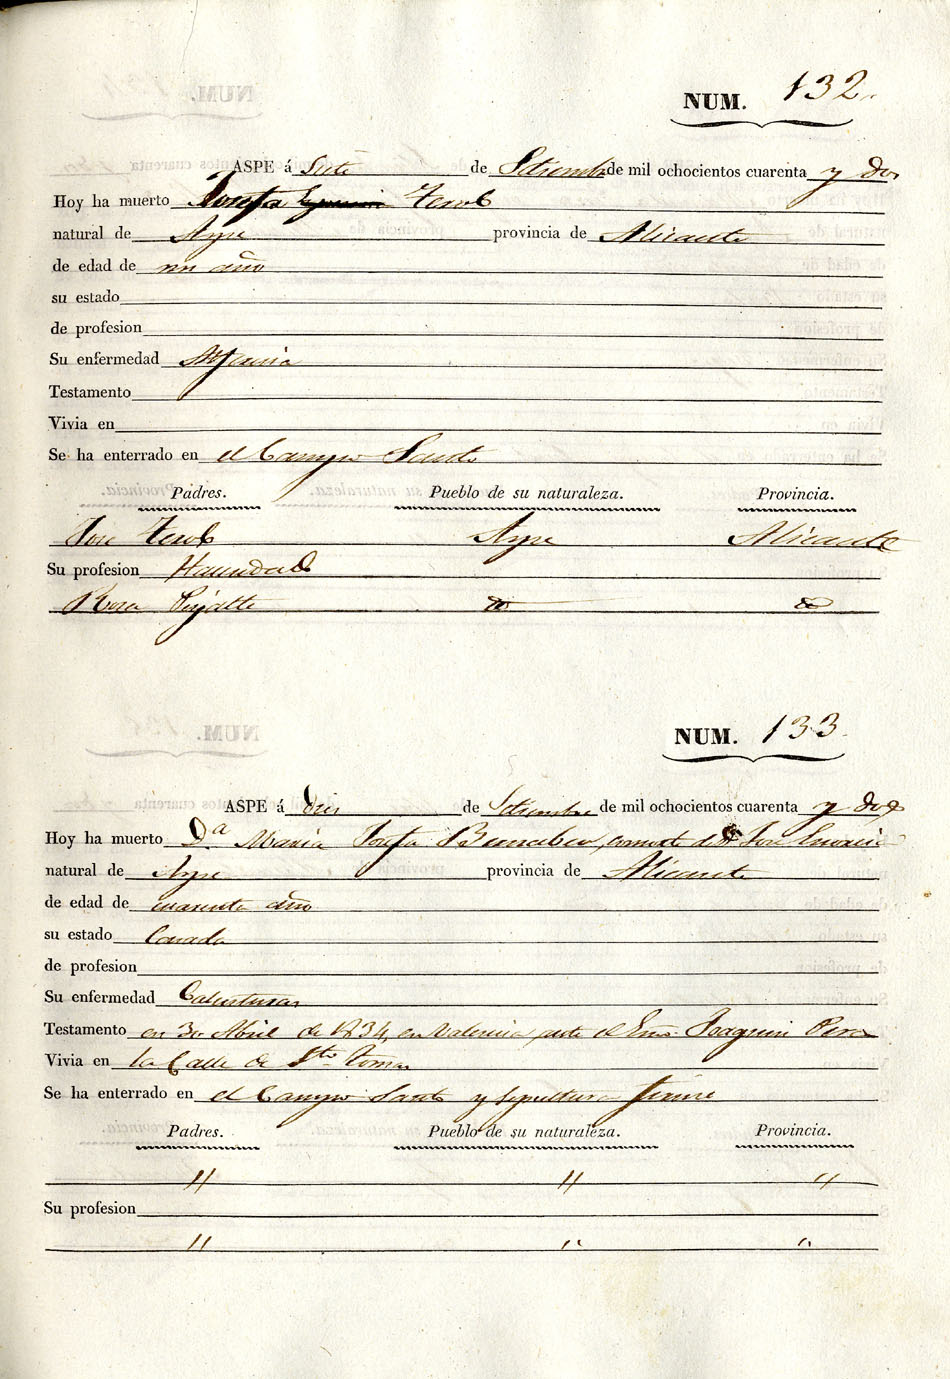 NUM. 132.
ASPE á Siete de Setiembre de mil ochocientos cuarenta y dos
Hoy ha muerto Josefa Terol
natural de Aspe provincia de Alicante
de edad de un año
su estado
de profesion
Su enfermedad Alferecia
Testamento
Vivia en
Se ha enterrado en el Campo Santo
Padres. Pueblo de su naturaleza. Provincia.
Jose Terol Aspe Alicante
Su profesion Hacendado
Rosa
NUM. 133.
ASPE á de Setiembre de mil ochocientos cuarenta y dos
Hoy ha muerto D.ª Maria Josefa consort de Dn Jose
natural de Aspe provincia de Alicante
de edad de cuarenta años
su estado Casada
de profesion
Su enfermedad Calenturas
Testamento en 30 Abril de 1834, en Valencia ante el Joaquin
Vivia en la Calle de Sto. Tomas
Se ha enterrado en el Campo Santo y sepultura
Padres. Pueblo de su naturaleza. Provincia.
" " "
Su profesion
" " "